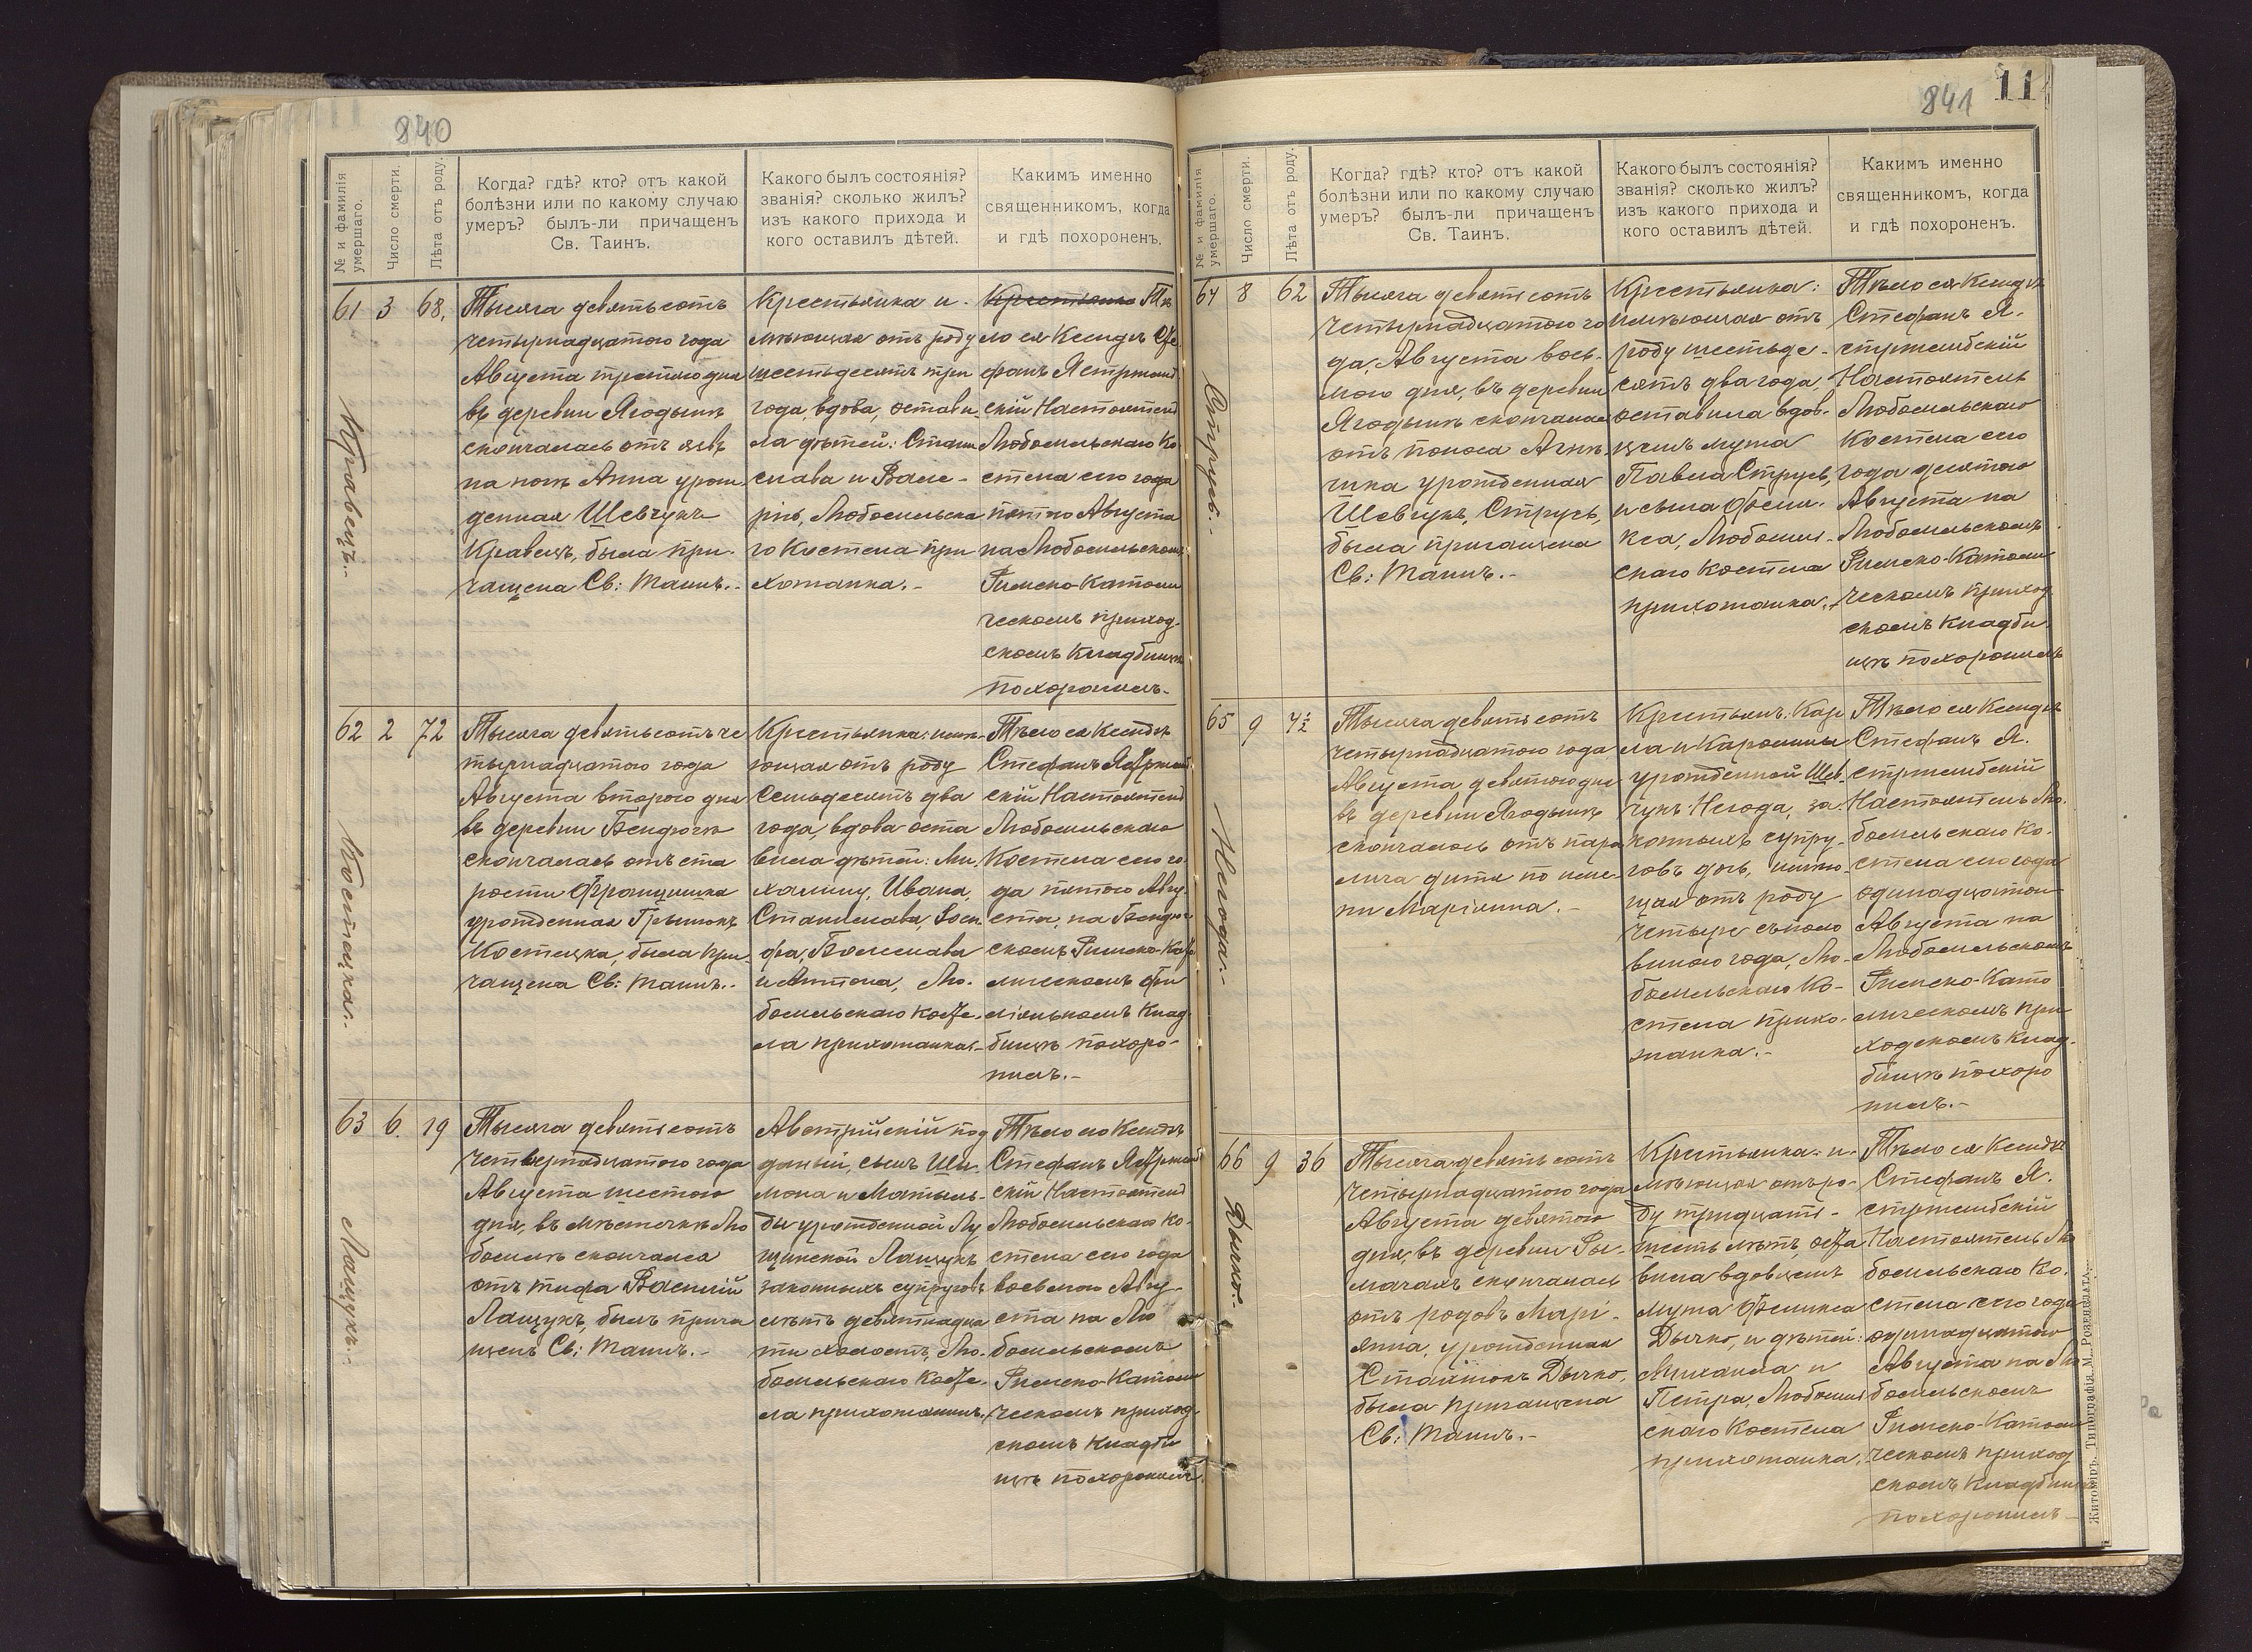 840
№ и фамилія умершаго.
Число смерти.
Лѣта отъ роду.
Когда? гдѣ? кто? отъ какой
болѣзни или по какому случаю
умеръ? былъ-ли причащенъ
Св. Таинъ.
Какого былъ состоянія?
званія? сколько жилъ?
изъ какого прихода и
кого оставилъ дѣтей.
Какимъ именно
священникомъ, когда
и гдѣ похороненъ.
61 3 68.
Кравецъ.-
Тысяча девятьсотъ
четырнадцатого года
Августа третяго дня
въ деревни Ягодынѣ
скончалась отъ язвъ
на ногѣ Анна урож
денная Шевчукъ
Кравецъ, была при-
чащена Св: Таинъ.-
Крестьянка и-
мѣющая отъ роду
шестьдесятъ три
года, вдова, остави
ла дѣтей: Стани
слава и Вале-
рію, Любомльска
го Костела при
хожанка.-
Крестьянка Тѣ
ло ея Ксендзъ Сте
фанъ Ястржемб
скій Настоятель
Любомльскаго Ко
стела сего года
пятого Августа
на Любомльскомъ
Римско-Католи
ческомъ приход
скомъ Кладбищѣ
похоронилъ.-
62 2 72
Костецка.-
Тысяча девятьсотъ че
тырнадцатого года
Августа второго дня
въ деревни Бендюгѣ
скончалась отъ ста
рости Францишка
урожденная Грынюкъ
Костецка, была при-
чащена Св: Таинъ.-
Крестьянка: имѣ-
ющая отъ роду
семьдесятъ два
года, вдова оста
вила дѣтей: Ми.
халину, Ивана,
Станислава, Іоси
фа, Болеслава
и Антона, Лю-
бомльскаго Косте-
ла прихожанка.-
Тѣло ея Ксендзъ
Стефанъ Ястржемб
скій Настоятель
Любомльскаго
Костела сего го-
да пятого Авгу-
ста, на Бендюг
скомъ Римско-Като
лическомъ фи
ліяльномъ Клад
бищѣ похоро-
нилъ.-
63 6. 19
Лащукъ.-
Тысяча девятьсотъ
четырнадцатого года
Августа шестого
дня, въ мѣстечкѣ Лю
бомлѣ скончался
отъ тифа Василій
Лащукъ, былъ прича
щенъ Св: Таинъ.-
Австрійскій под
даный, сынъ Ши-
мона и Матыль-
ды урожденной Лу
щинской Лащукъ
законныхъ супруговъ
лѣтъ девятнадца
ти холостъ, Лю-
бомльскаго Косте-
ла прихожанинъ.
Тѣло его Ксендзъ
Стефанъ Ястржемб
скій Настоятель
Любомльскаго Ко-
стела сего года
восьмого Авгу-
ста на Лю
бомльскомъ
Римско-Католи
ческомъ приход
скомъ Кладби
щѣ похоронилъ.
841
11
№ и фамилія умершаго.
Число смерти.
Лѣта отъ роду.
Когда? гдѣ? кто? отъ какой
болѣзни или по какому случаю
умеръ? былъ-ли причащенъ
Св. Таинъ.
Какого былъ состоянія?
званія? сколько жилъ?
изъ какого прихода и
кого оставилъ дѣтей.
Какимъ именно
священникомъ, когда
и гдѣ похороненъ.
64 8 62
Струсь.-
Тысяча девятьсотъ
четырнадцатого го
да, Августа вось-
мого дня, въ деревни
Ягодынѣ скончалась
отъ поноса Агнѣ-
шка урожденная
Шевчукъ, Струсь,
была причащена
Св: Таинъ.-
Крестьянка:
имѣющая отъ
роду шестьде-
сятъ два года,
оставила вдов-
цемъ мужа
Павла Струсь,
и сына Фели-
кса, Любомль-
скаго Костела
прихожанка.-
Тѣло ея Ксендзъ
Стефанъ Я-
стржембскій
Настоятель
Любомльскаго
Костела сего
года десятого
Августа на
Любомльскомъ
Римско-Католи
ческомъ приход
скомъ Кладби-
щѣ похоронилъ
65 9 4½
Негода.-
Тысяча девятьсотъ
четырнадцатого года
Августа девятого дня
въ деревни Ягодынѣ
скончалось отъ пара
лича дитя по име-
ни Маріянна.-
Крестьянъ: Кар
ла и Каролины
урожденной Шев-
чукъ: Негода, за-
конныхъ супру-
говъ дочь, имѣю-
щая отъ роду
четыре съ поло
виною года, Лю-
бомльскаго Ко-
стела прихо-
жанка.-
Тѣло ея Ксендзъ
Стефанъ Я.
стржембскій
Настоятель Лю.
бомльскаго Ко-
стела сего года
одинадцатого
Августа на
Любомльскомъ
Римско-Като
лическомъ при
ходскомъ Клад-
бищѣ похоро
нилъ.-
66 9 36
Дычко.-
Тысяча девятьсотъ
четырнадцатого года
Августа девятого
дня, въ деревни Ры-
мачахъ скончалась
отъ родовъ Марі-
янна, урожденная
Дычко,
была причащена
Св: Таинъ.-
Крестьянка: и-
мѣющая отъ ро-
ду тридцать-
шесть лѣтъ, оста
вила вдовцемъ
мужа Феликса
Дычко, и дѣтей:
Михаила и
Петра, Любомль
скаго Костела
прихожанка.
Тѣло ея Ксендзъ
Стефанъ Я.
стржембскій
Настоятель Лю
бомльскаго Ко.
стела сего года
одинадцатого
Августа на Лю
бомльскомъ
Римско-Католи
ческомъ приход
скомъ Кладбищѣ
похоронилъ-
Житоміръ. Типографія М. Розенблата.